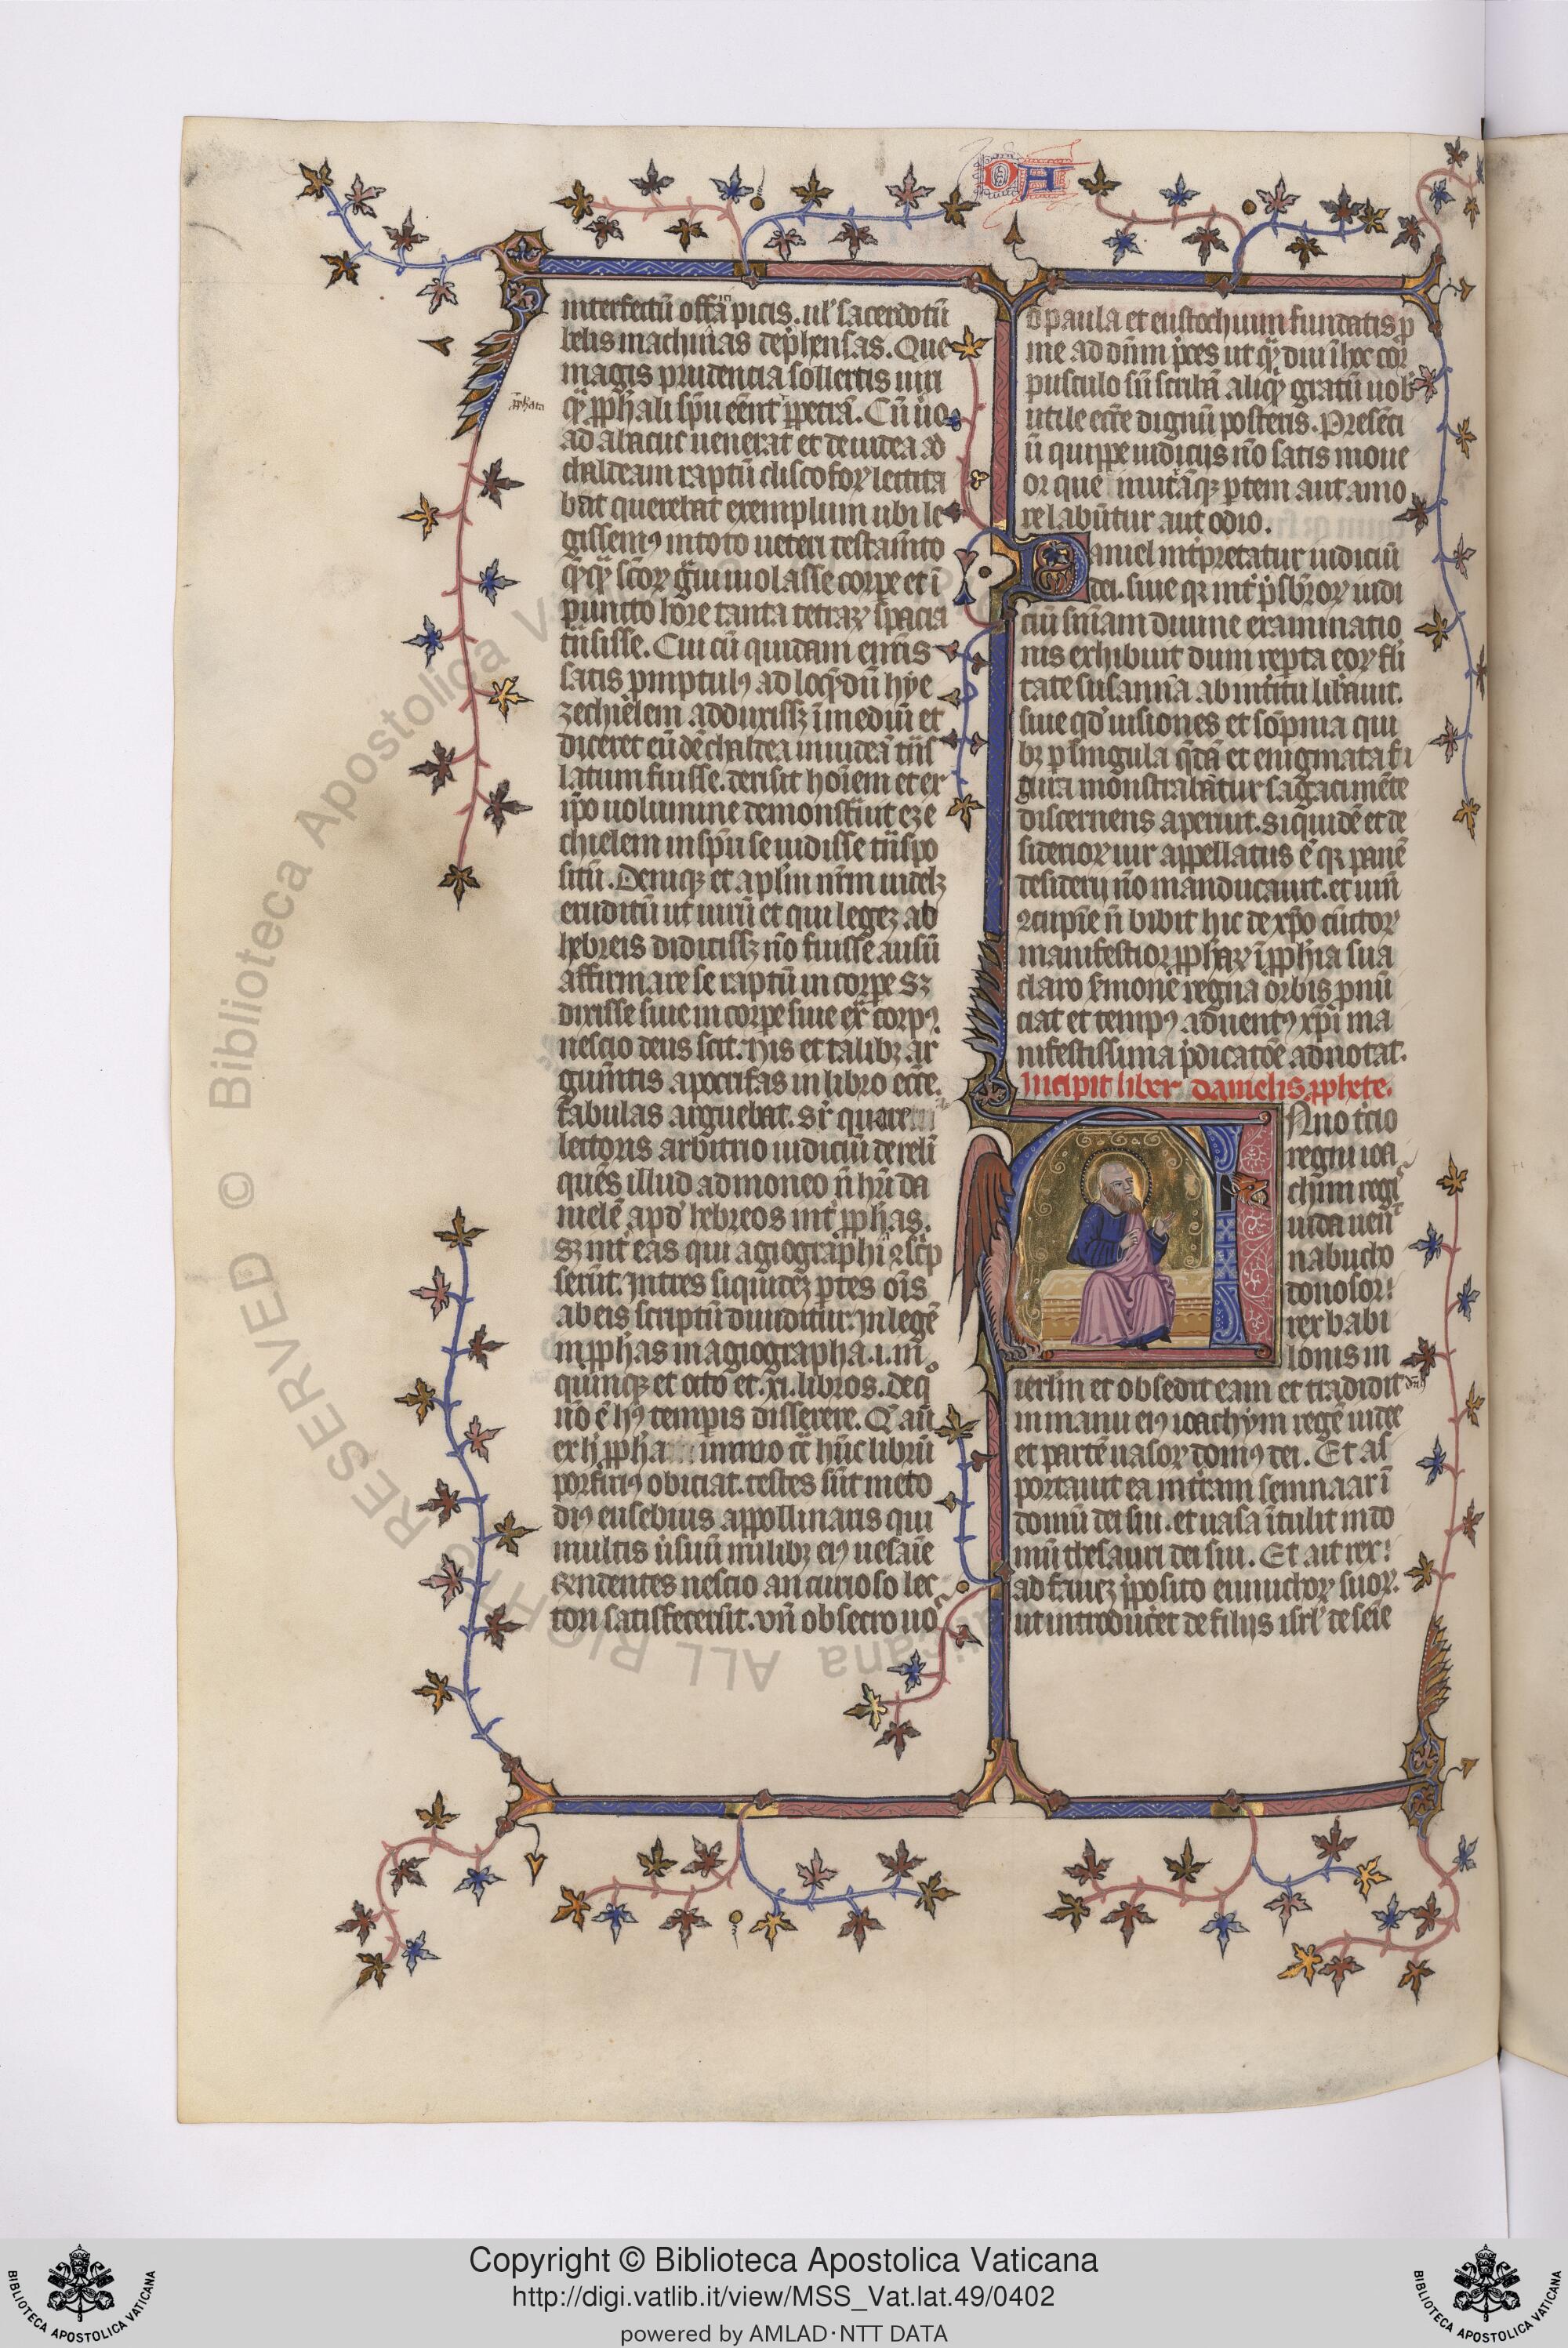 DA
interfectū offā picis. ul' sacerdotū
belis machinas dephensas. Que
magis prudencia sollertis uiri
ad abacuc uenerat et de iudea ad
chaldeam raptū discoforꝝ lectita
bat querebat exemplum ubi le
gissemꝰ in toto ueteri testam̄to
puncto hore tanta terraꝝ spacia
trāsisse. Cui cū quidam ex nr̄is
satis pmptulꝰ ad loq̄ndū hye
zechielem adduxissꝫ ī mediū et
diceret eū de chaldea in iudeā trāns
latum fuisse. derisit hoīem et ex
ip̄o uolumine demonstͣuit eze
chielem in sp̄u se uidisse trāspo
sitū. Deniqꝫ et aplm̄ nr̄m uidelꝫ
eruditū ut uirū et qui legeꝫ ab
hebreis didicissꝫ nō fuisse ausū
affirmare se raptū in corpe sꝫ
dixisse siue in corpe siue ext̄ corpꝰ
nescio deus scit. His et talibꝫ ar
gum̄tis apocrifas in libro eccͤe
fabulas arguebat. Sr̄ qua re
lectoris arbitrio iudiciū dereli
quēs illud admoneo n̄ hr̄i da
nielē apd' hebreos int' pph̄as.
sꝫ int' eas qui agiographā ꝯsc̄p
serūt. In tres siquideꝫ ptes oīs
ab eis scriptū diuiditur. In legē
in pph̄as in agiographa. i. in
quinqꝫ et octo et .xi. libros. de q̊
nō ē hꝰ temporis disserere. Q̄ aū
ex h̊ pph̄a immo cͣ hūc librū
porfiriꝰ obiciat. testes sūt meto
diꝰ eusebius appollinaris qui
multis ūsuū milibꝫ eiꝰ uesaīe
rn̄dentes nescio an curioso lec
tori satisfecerīt. Vn̄ obsecro uo
o paula et eustochium fundatis p
me ad dn̄m p̄ces ut qͣdiu ī hoc cor
pusculo sū scribā aliqͥd gratū uob'
utile eccͤe dignū posteris. Presēti
ū quippe iudiciis nō satis moue
or que ī mutrāqꝫ ptem aut amo
re labūtur aut odio.
Daniel int̄pretatur iudiciū
dei. siue qꝛ int' p̄sbr̄oꝝ iudi
ciū sn̄iam diuine examinatio
nis exhibuit dum repta eoꝝ fl̄i
tate susannā ab int̄itu lib̄auit.
siue qd' uisiones et sōpnia qui
bꝫ p singula q̄dā et enigmata fu
gura monstrabātur sagaci mēte
discernens aperuit. Siquidē et de
sideriorꝝ uir appellatus ē qꝛ panē
desiderij nō manducauit. et uinū
ꝯcupīe n̄ bibit hic de xp̄o cūctoꝝ
manifestior pph̄aꝝ ī pph̄ia sua
claro s̄mone regna orbis pnū
ciat et tempꝰ aduentꝰ xp̄i ma
nifestissima p̄dicatōe adnotat.
Incipit liber danielis pph̄ete.
Anno t̄cio
regni ioa
chim regͥ
iuda uen̄
nabucho
donosor
rex babi
lonis in
ierl'm et obsedit eam et tradidit dn̄s
in manu eiꝰ ioachym regē iude
et partē uasoꝝ domꝰ dei. Et as
portauit ea in t̄ram sennaar ī
domū dei sui. et uasa ītulit in do
mū thesauri dei sui. Et ait rex
ad fanez p̄posito eunuchoꝝ suoꝝ.
ut introduceret de filijs isrl' de seīe
Copyright © Biblioteca Apostolica Vaticana
http://digi.vatlib.it/view/MSS_Vat.lat.49/0402
powered by AMLAD·NTT DATA
BIBLIOTECA APOSTOLICA VATICANA
BIBLIOTECA APOSTOLICA VATICANA